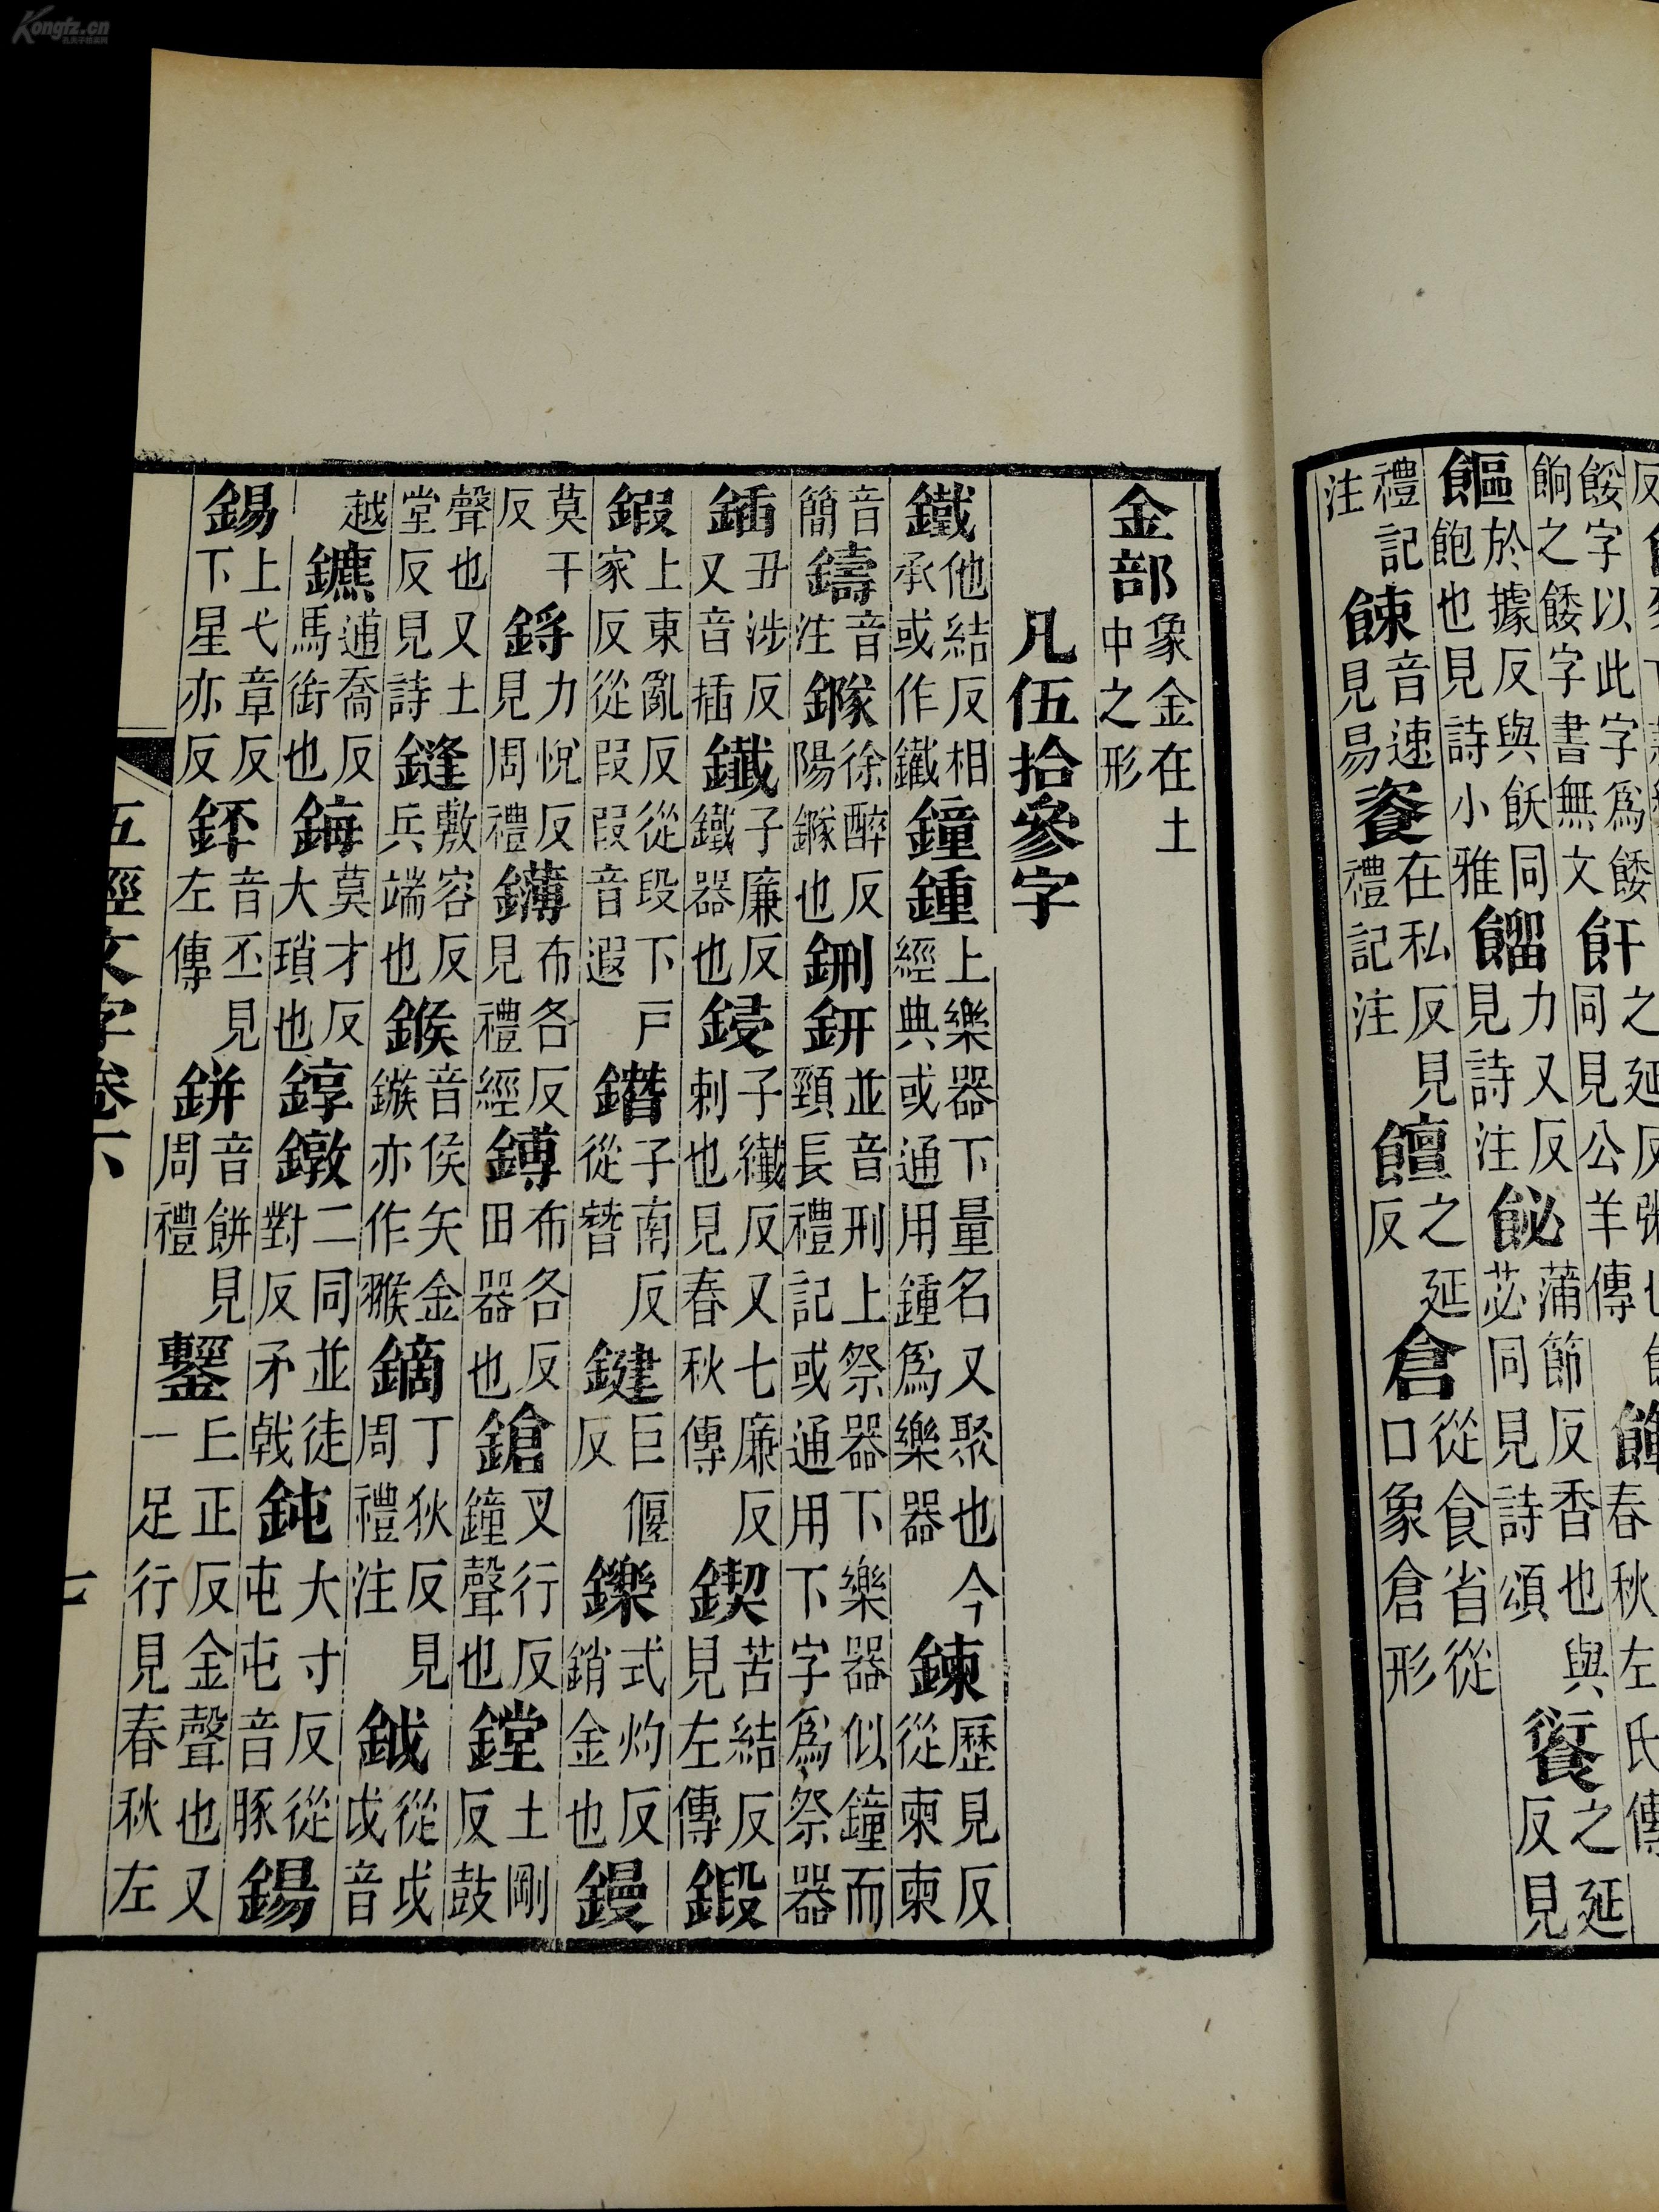 餒字以此字爲餧餉之餧字書無文 飦之延反粥也同見公羊傳
饇於據反與飫同飽也見詩小雅 餾力又反見詩注 飶蒲節反香也與苾同見詩頌 之延反見
禮記注 餗音速見易 餈在私反見禮記注 饘之延反 倉從食省從口象倉形
金部象金在土中之形
凡伍拾參字
鐵他結反相承或作鐵 鐘鍾上樂器下量名又聚也今經典或通用鍾爲樂器 鍊歷見反從柬柬
音簡 鑄音注 鐆徐醉反陽鐆也 鉶鈃並音刑上祭器下樂器似鐘而頸長禮記或通用下字爲祭器
鍤丑涉反又音插 鑯子廉反鐵器也 鋟子纖反又七廉反刺也見春秋傳 鍥苦結反見左傳 鍛
鍜上東亂反從段下戶家反從叚叚音遐 鐕子南反從朁 鍵巨偃反 鑠式灼反銷金也 鏝
莫干反 鋝力悅反見周禮 鑮布各反見禮經 鎛布各反田器也 鎗叉行反鐘聲也 鏜土剛反鼓
聲也又土堂反見詩 鏠敷容反兵端也 鍭音侯矢金鏃亦作翭 鏑丁狄反見周禮注 鉞從戉戉音
越 鑣逋喬反馬銜也 鋂莫才反大瑣也 錞鐓二同並徒對反矛戟 鈍大寸反從屯屯音豚 鍚
錫上弋章反下星亦反 鉟音丕見左傳 鉼音餅見周禮 鏧上正反金聲也又一足行見春秋左
五經文字卷下 七
Kongfz.cn